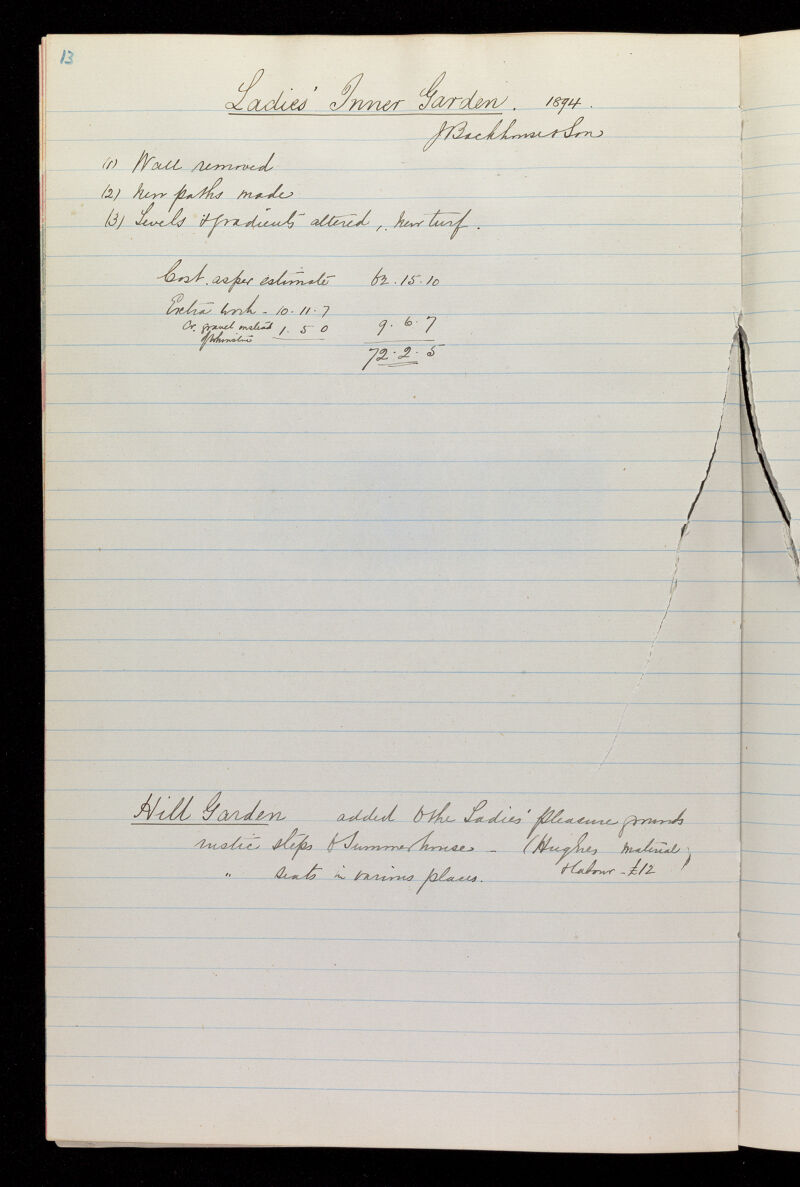 13
Ladies' Inner Garden. 1894.
J Backhouse & Son
(1) Wall removed
(2) New paths made
(3) Levels & gradients altered, new turf.
Cost. as per estimate 62.15.10
Extra work - 10.11.7
Cr. gravel instead 1. 5 0 9. 6. 7
of Whinstone
72. 2. 5
Hill Garden added to the Ladies' pleasure grounds
rustic steps to Summer house - (Hughes material,
" seats in various places. & labour - £12 )